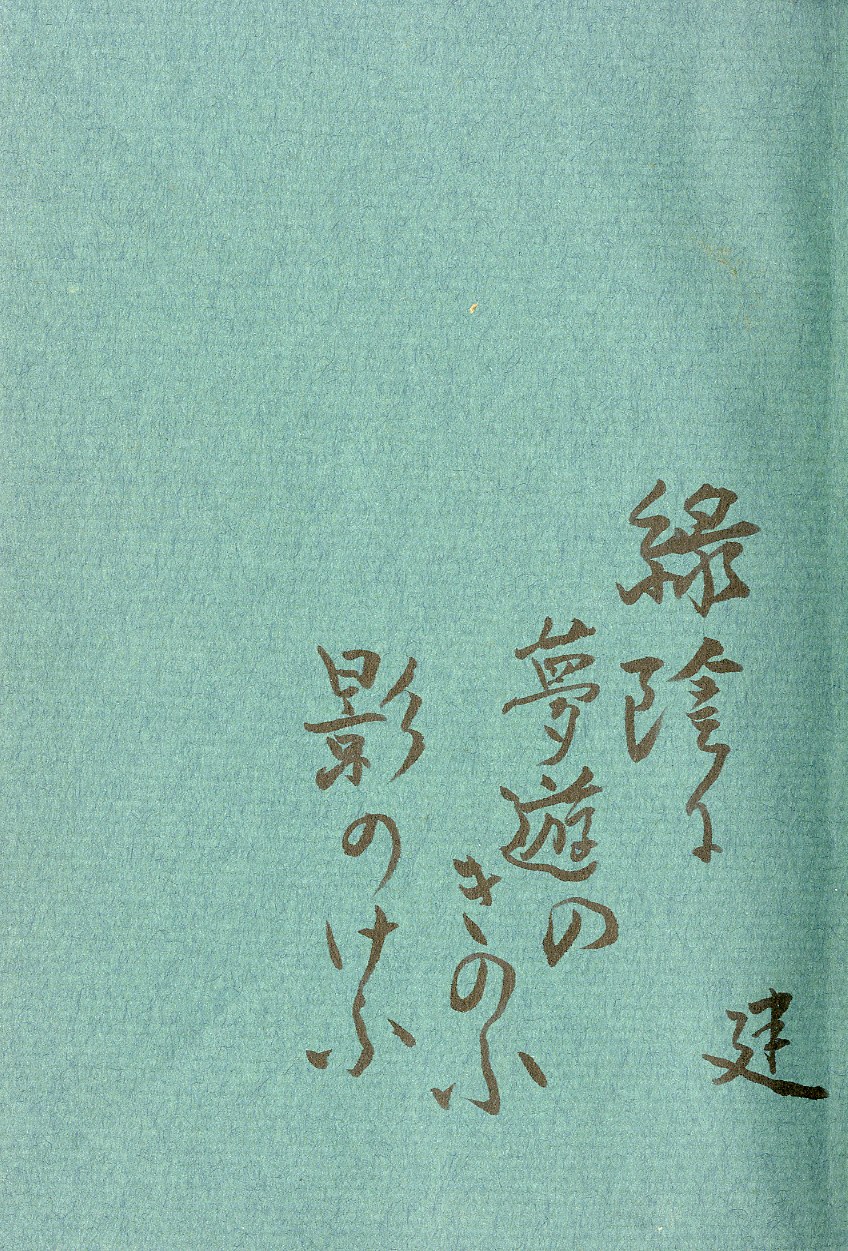 建
緑陰に
夢遊の
きのふ
影のけふ